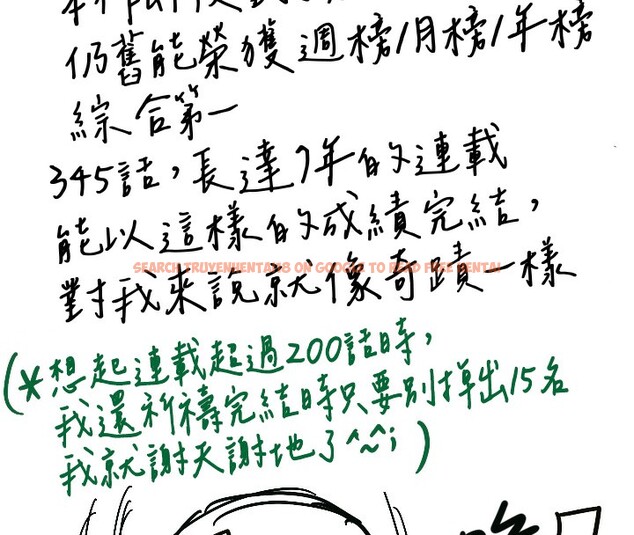 仍舊能榮獲週榜/月榜/年榜
綜合第一
345話，長達7年的連載
能以這樣的成績完結，
SEARCH TRUYENHENTAI18 ON GOOGLE TO READ FREE HENTAI
對我來說就像奇蹟一樣
(*想起連載超過200話時，
我還祈禱完結時只要別掉出15名
我就謝天謝地了^~^;)